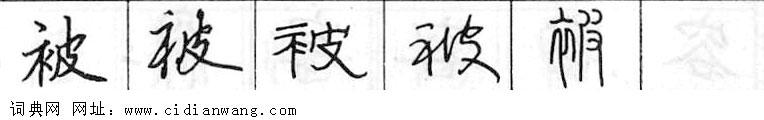 被 被 被 被 被
词典网 网址：www.cidianwang.com